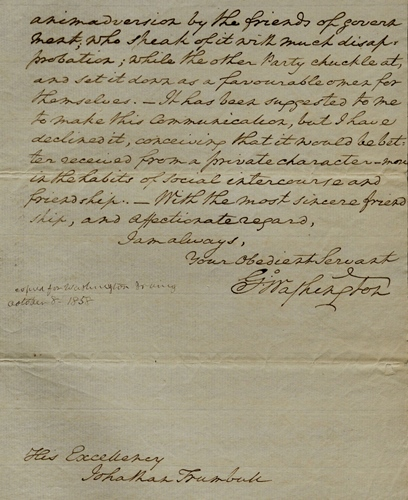 animadversion by the friends of govern
ment; who speak of it with much disap-
probation; while the other Party chuckle at,
and set it down as a favourable omen for
themselves. — It has been suggested to me
to make this Communication, but I have
declined it, conceiving that it would be bet-
ter received from a private character — more
in the habits of social intercourse and
friendship. — With the most sincere friend
ship, and Affectionate regard,
I am always,
Your Obedient Servant
Go: Washington
copied for Washington Irving
October 8. 1858
His Excellency
Johathan Trumbull